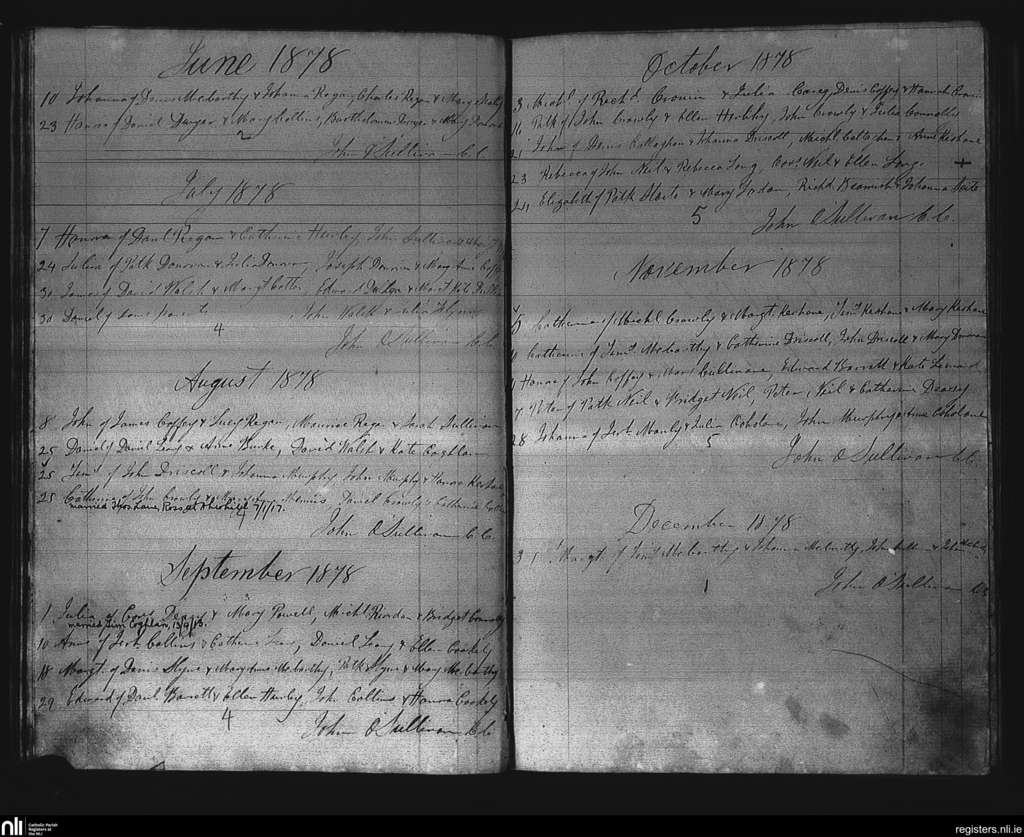 June 1878
10 Johanna of Denis McCarthy & Johanna Regan, Charles Regan & Mary
23 Hanna of Daniel Dwyer & Mary Collins, Bartholomew Dwyer & Mary Donovan
2
John O'Sullivan C.C.
July 1878
7 Hanna of Danl Regan & Catherine Hurley, John Sullivan
24 Julia of Patk Donovan & Julia Donovan, Joseph Donovan & Mary Anne
30 James of David Walsh & Margt Cotter, Edward & Margt Kate
30 Daniel of same parents John Walsh & Julia Flynn
4
John O'Sullivan C.C.
August 1878
8 John of James Coffey & Lucy Regan, Maurice Regan & Sarah Sullivan
25 Daniel of Daniel Leary & Anne Burke, David Walsh & Kate Coghlan
25 Timy of John Driscoll & Johanna Murphy John Murphy & Hanna
25 Catherine of John Crowly & Daniel Crowly & Catherine
married Ths Shane, Ross at 7/1/17.
4
John O'Sullivan C.C.
September 1878
1 Julia of & Mary Powell, Michl Riordan & Bridget Connolly
married Jim Coghlan, 13/9/13.
10 Anne of Jerh Collins & Catherine Leary, Daniel Leary & Ellen Coakely
18 Margt of Denis Flynn & Mary Anne McCarthy, Patk Flynn & Mary McCarthy
29 Edward of Danl Barrett & Ellen Hurley, John Collins & Hanna Coakely
4
John O'Sullivan C.C.
October 1878
3 Michl of Richd Cronin & Julia Carey, Denis Coffey & Hannah Cronin
16 Patk of John Crowly & Ellen John Crowly & Julia Connolly
21 John of Denis Callaghan & Johanna Driscoll, Michl Callaghan & Anne
23 Rebecca of John Neil & Rebecca Long, Corns Neil & Ellen Long +
24 Elizabeth of Patk Harte & Mary Jordan, Richd Beamish & Johanna Harte
5
John O'Sullivan C.C.
November 1878
5 Catherine of Michl Crowly & Margt Keohane, Timy Keohane & Mary Keohane
Catherine of Timy McCarthy & Catherine Driscoll, John Driscoll & Mary Donovan
Hanna of John Coffey & Mary Cullinane, Edward Barrett & Kate Leonard
Peter of Patk Neil & Bridget Neil, Peter Neil & Catherine Deasy
28 Johanna of Jerh Manly & Julia Coholane, John Murphy & Anne Coholane
5
John O'Sullivan C.C.
December 1878
31 Margt of Timy McCarthy & Johanna McCarthy, John Sullivan &
1
John O'Sullivan CC
nli
Catholic Parish
Registers at
the NLI
registers.nli.ie